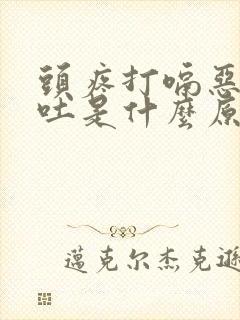 頭疼打嗝惡
吐是什麼原
邁克尔杰克遜